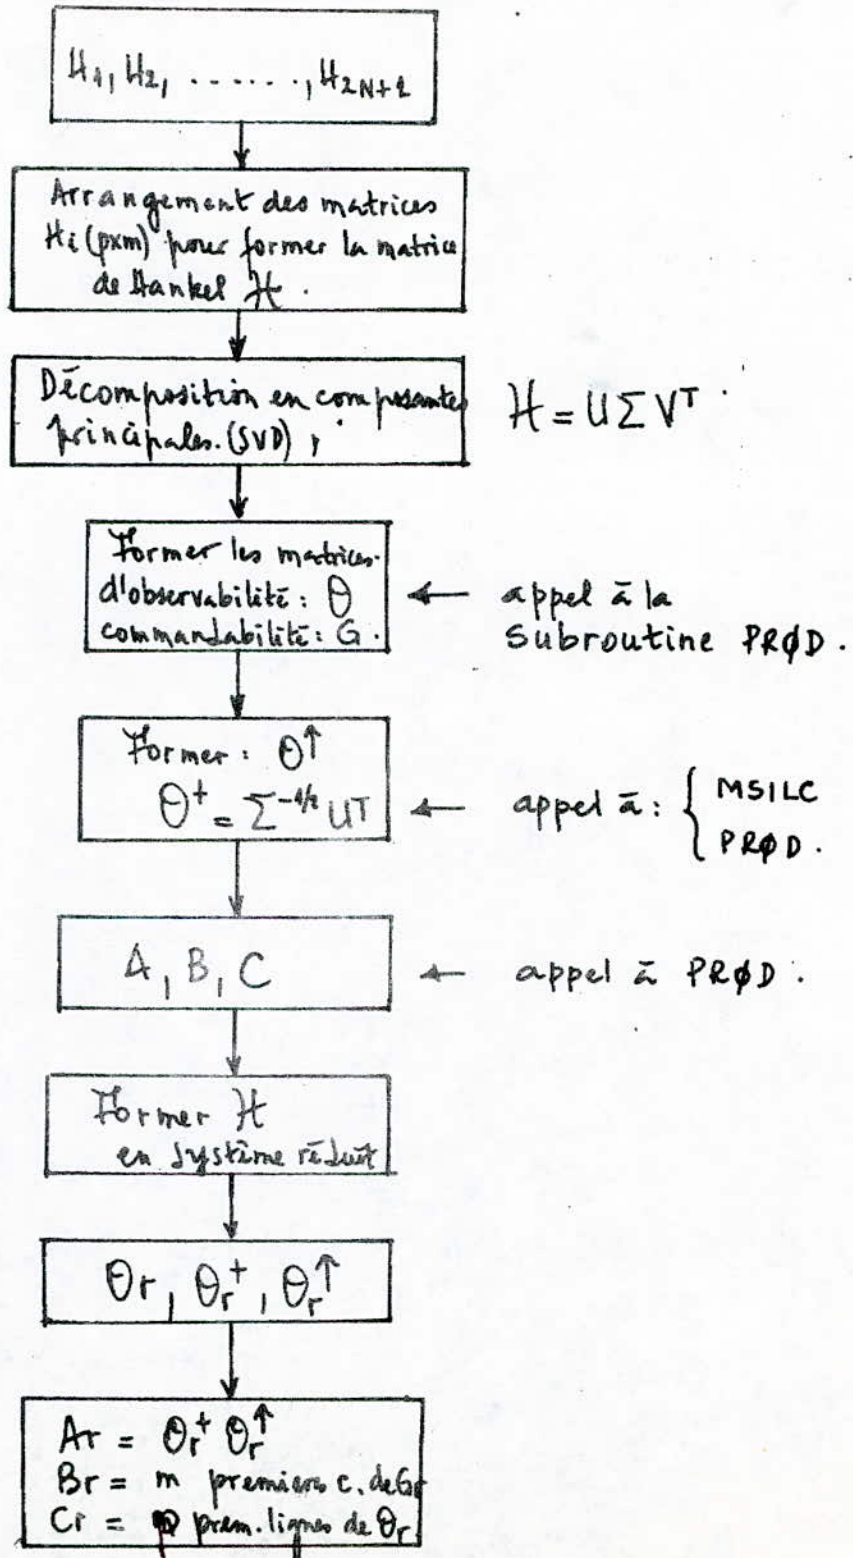 H₁, H₂, ......., H₂N+1
Arrangement des matrices
Hi (pxm) pour former la matrice
de Hankel ℋ.
Décomposition en composantes
principales. (SVD),
ℋ = U Σ Vᵀ
Former les matrices
d'observabilité: Θ
commandabilité: G.
← appel à la
Subroutine PRØD.
Former: Θ↑
Θ⁺ = Σ⁻¹/² Uᵀ
← appel à: { MSILC
PRØD.
A, B, C
← appel à PRØD.
Former ℋ
en système réduit
Θr, Θr⁺, Θr↑
Ar = Θr⁺ Θr↑
Br = m premiers c. de Gr
Cr = prem. lignes de Θr